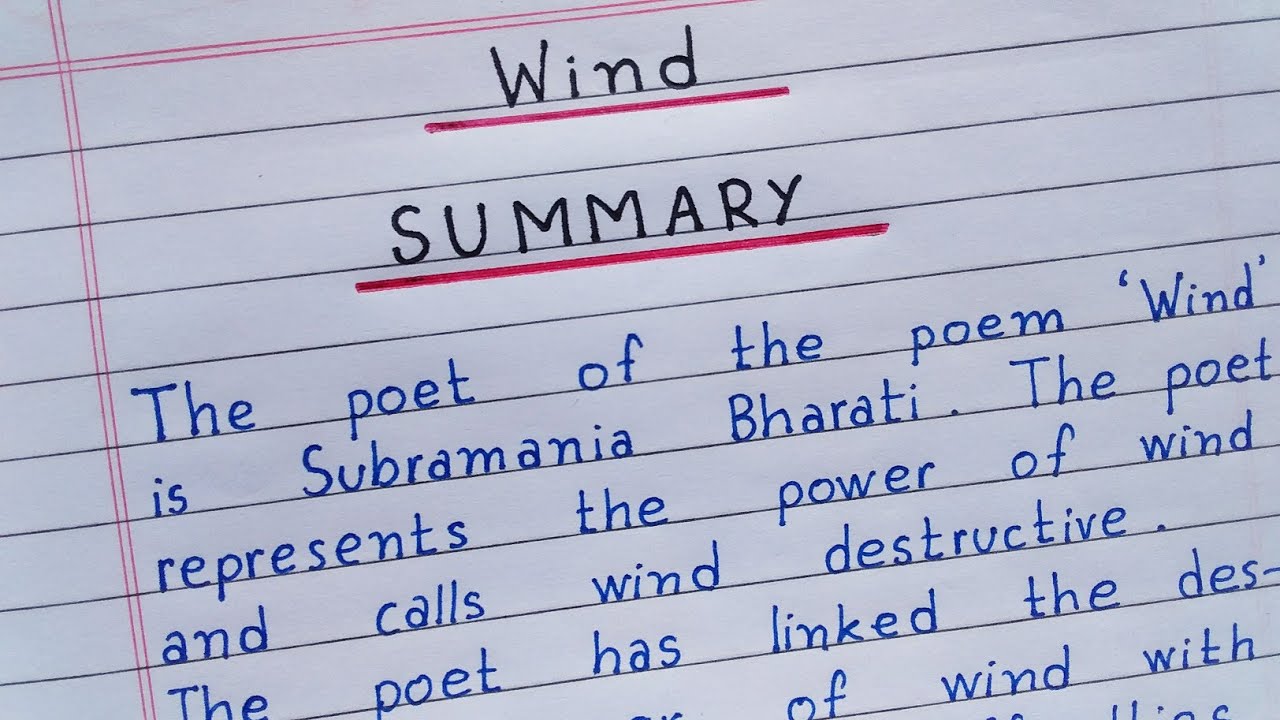 Wind
SUMMARY
The poet of the poem 'Wind'
is Subramania Bharati. The poet
represents the power of wind
and calls wind destructive.
The poet has linked the des-
of wind with